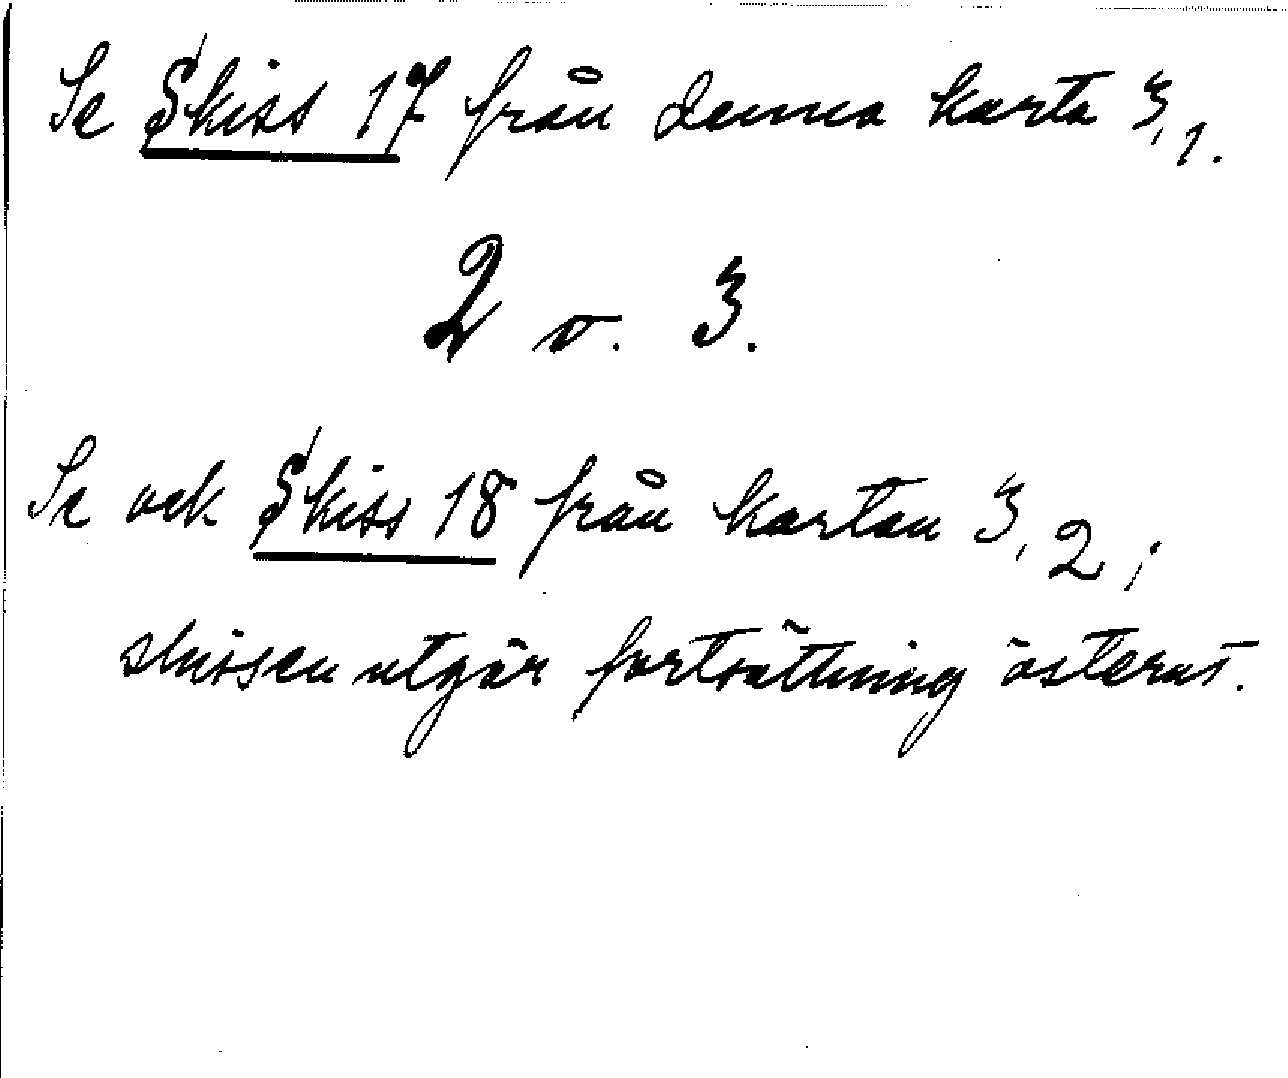 Se Skiss 17 från denna karta 3,1.
2 v. 3.
Se ock Skiss 18 från kartan 3,2;
skissen utgör fortsättning österut.